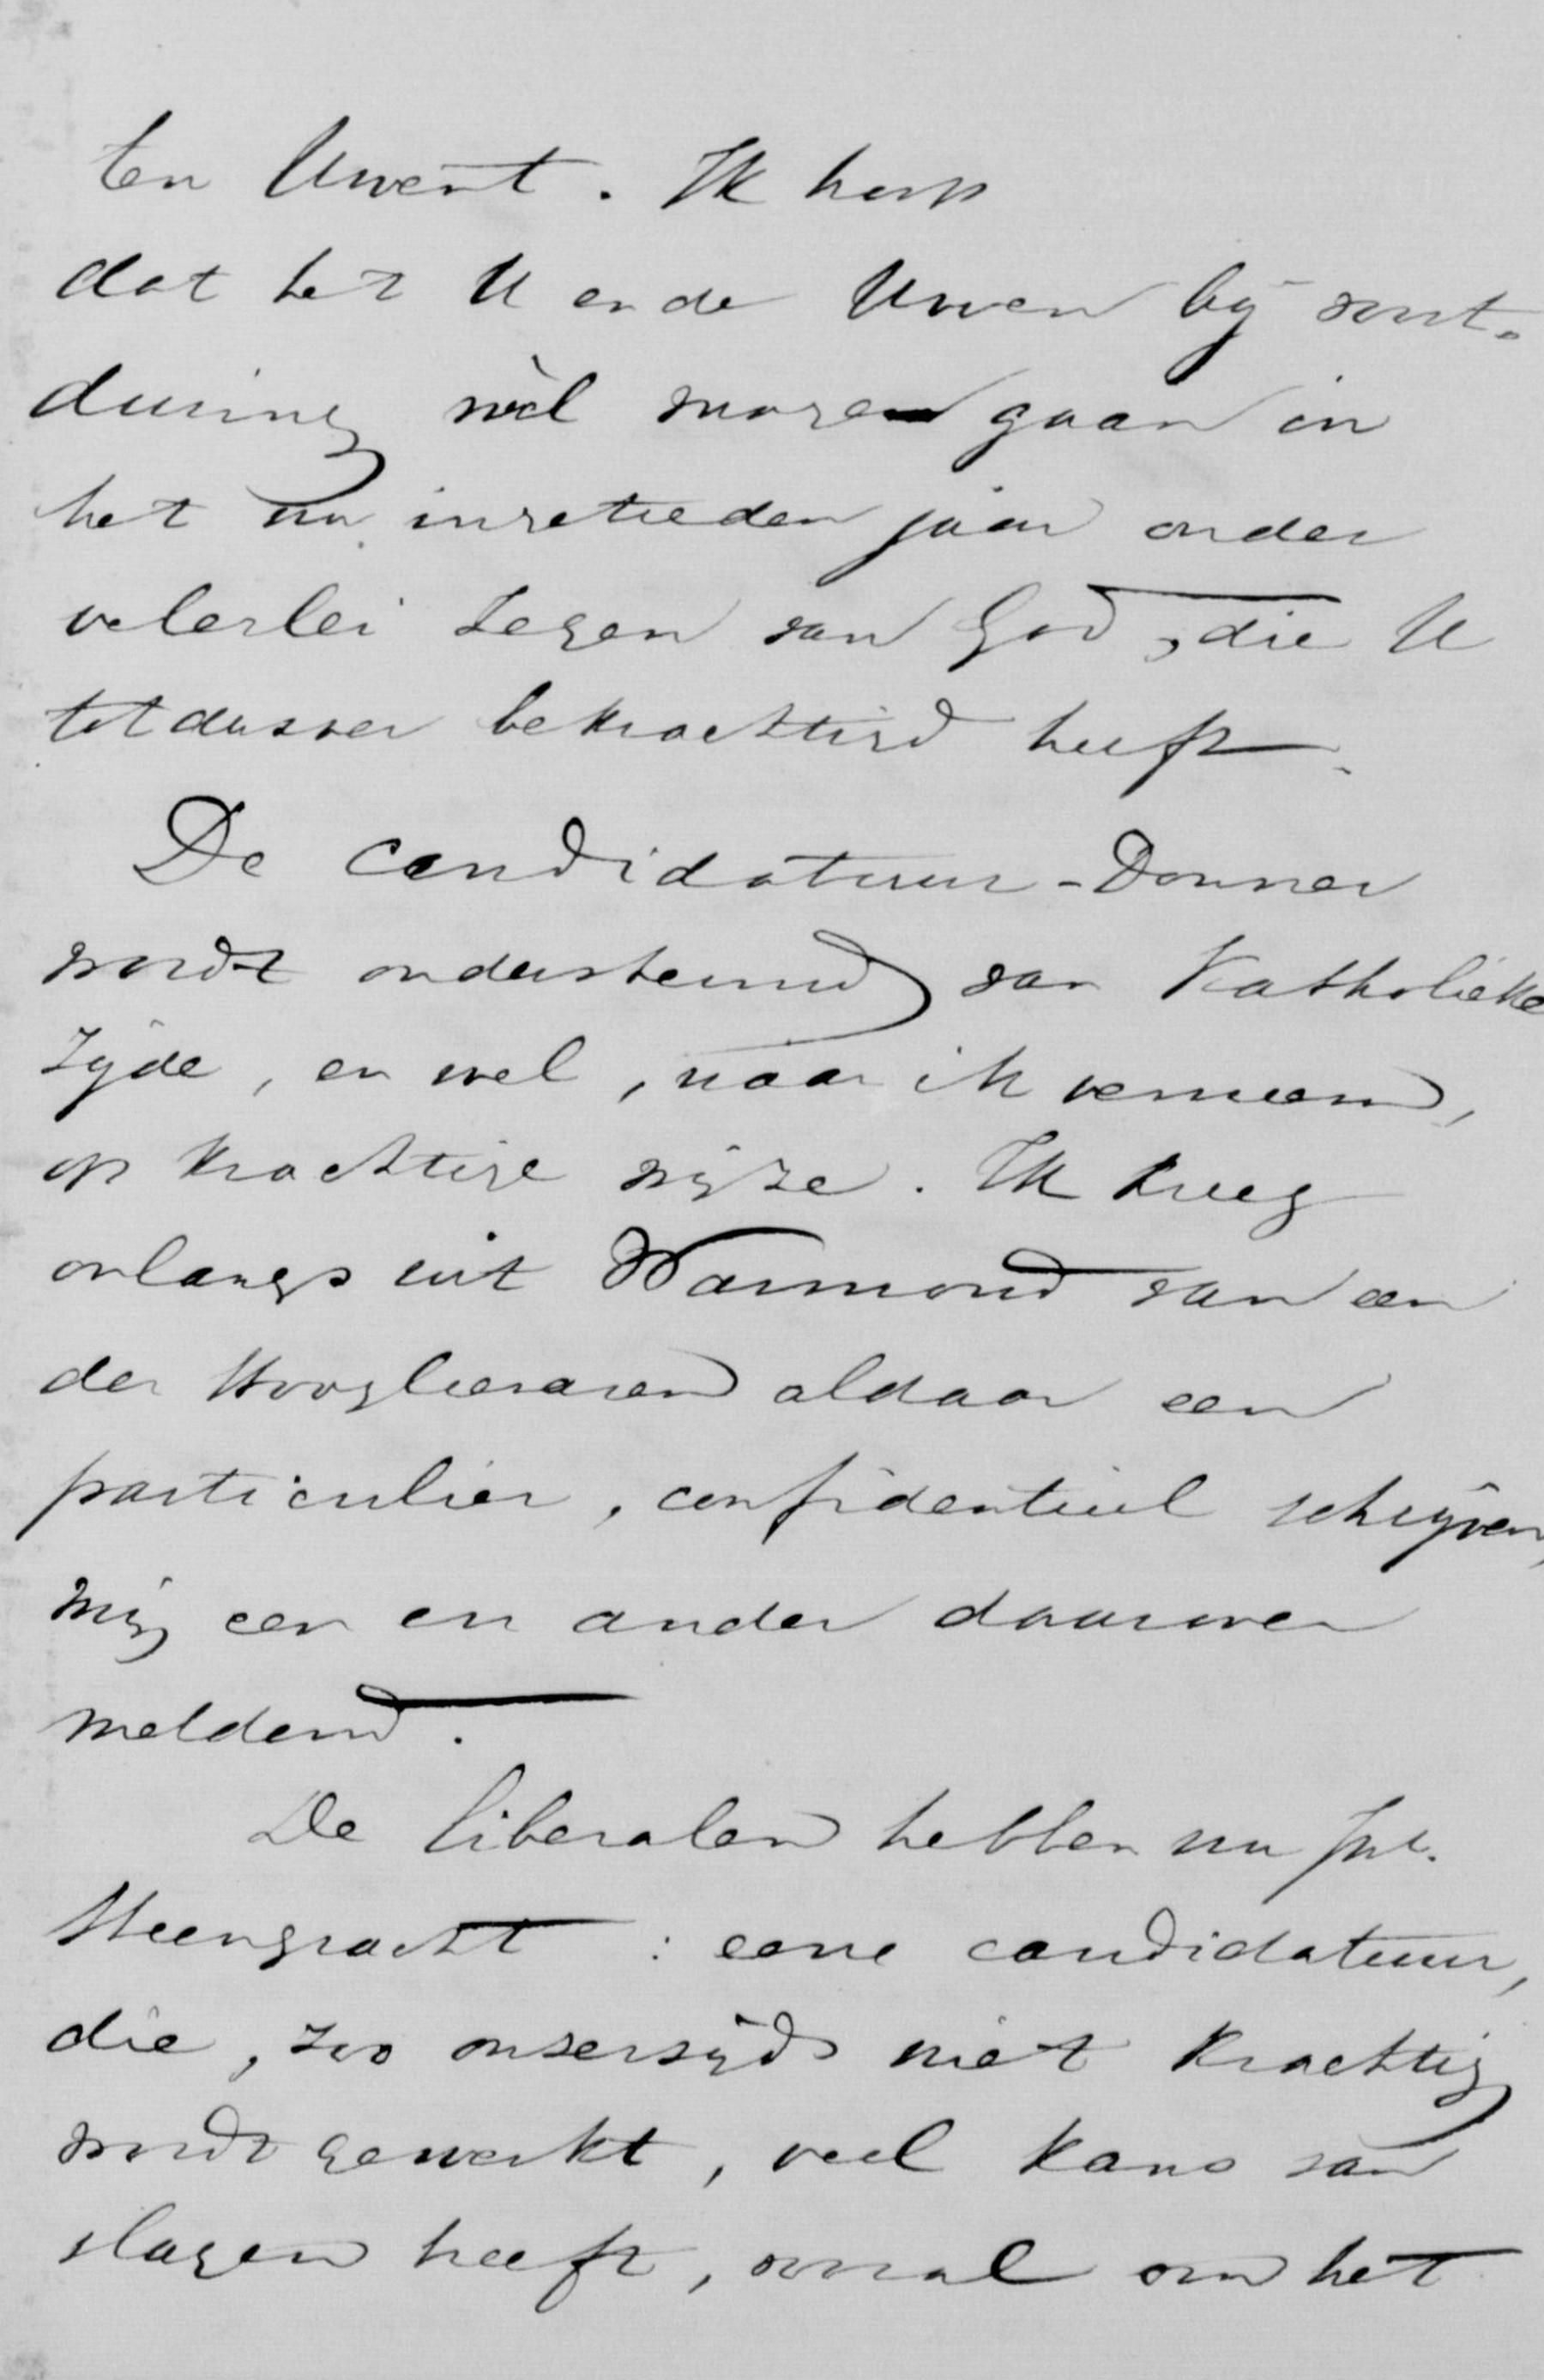 ten Uwent. Ik hoop
dat het U en de Uwen bij voort-
during wèl moge gaan in
het nu ingetreden jaar onder
velerlei zegen van God, die U
totdusver bekrachtigd heeft.
De candidatuur-Donner
wordt ondersteund van Katholieke
zijde, en wel, naar ik verneem,
op krachtige wijze. Ik kreeg
onlangs uit Warmond van een
der Hoogleeraren aldaar een
particulier, confidentieel schrijven,
mij een en ander daarover
meldend.
De liberalen hebben nu Jhr.
Steengracht : eene candidatuur,
die, zoo onzerzijds niet krachtig
wordt gewerkt, veel kans van
slagen heeft, vooral om het